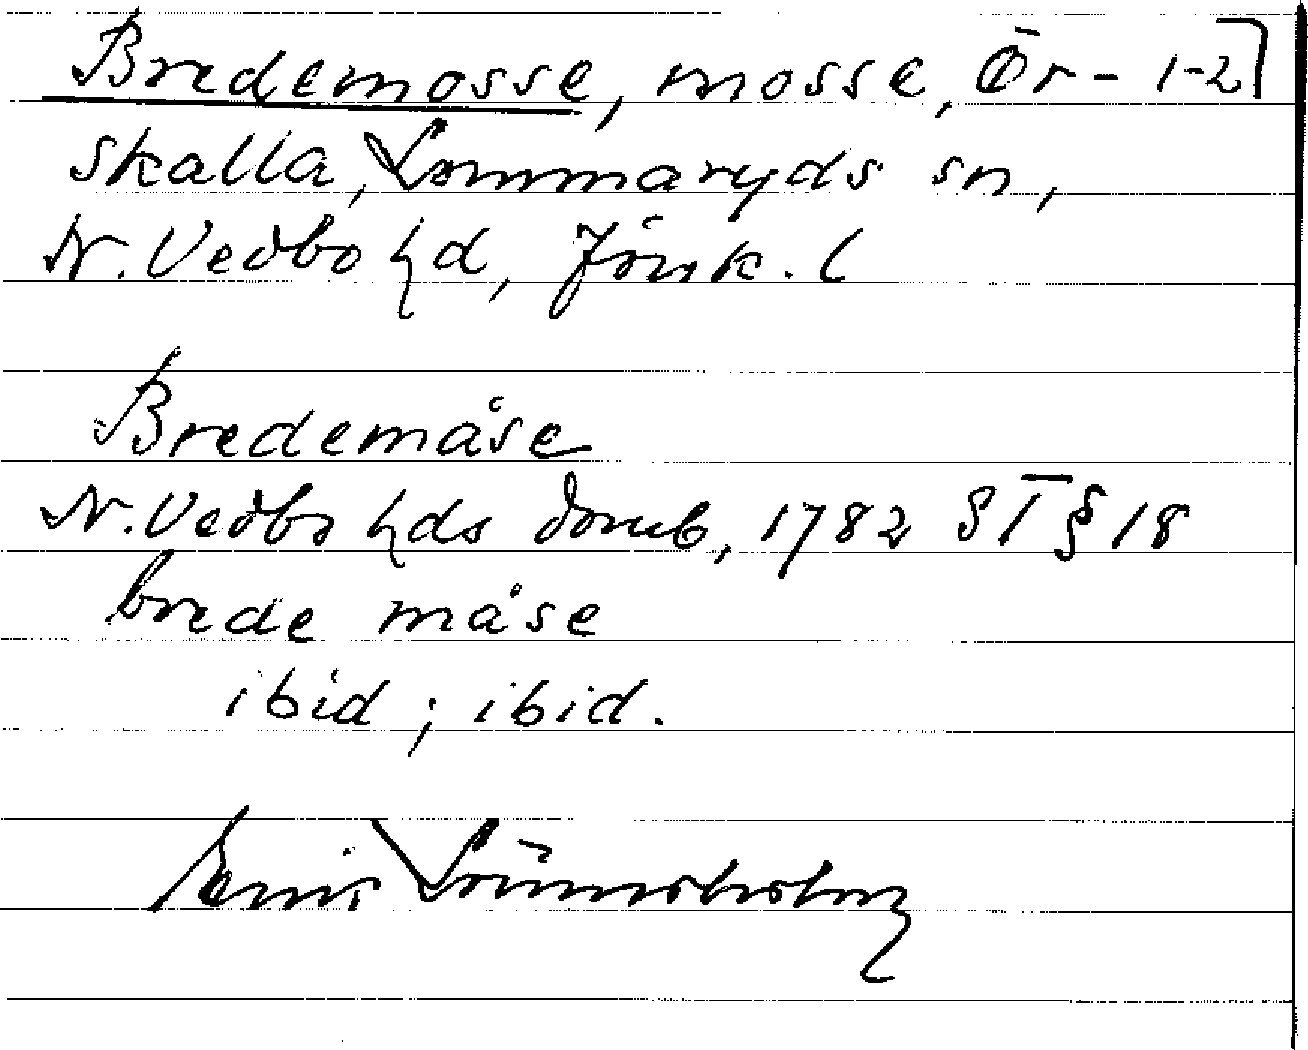 Bredemosse, mosse, Ör- 1-2]
skalla, Lommaryds sn,
N. Vedbo hd, Jönk. l
Bredemåse
N. Vedbo hds domb, 1782 ST § 18
brede måse
ibid; ibid.